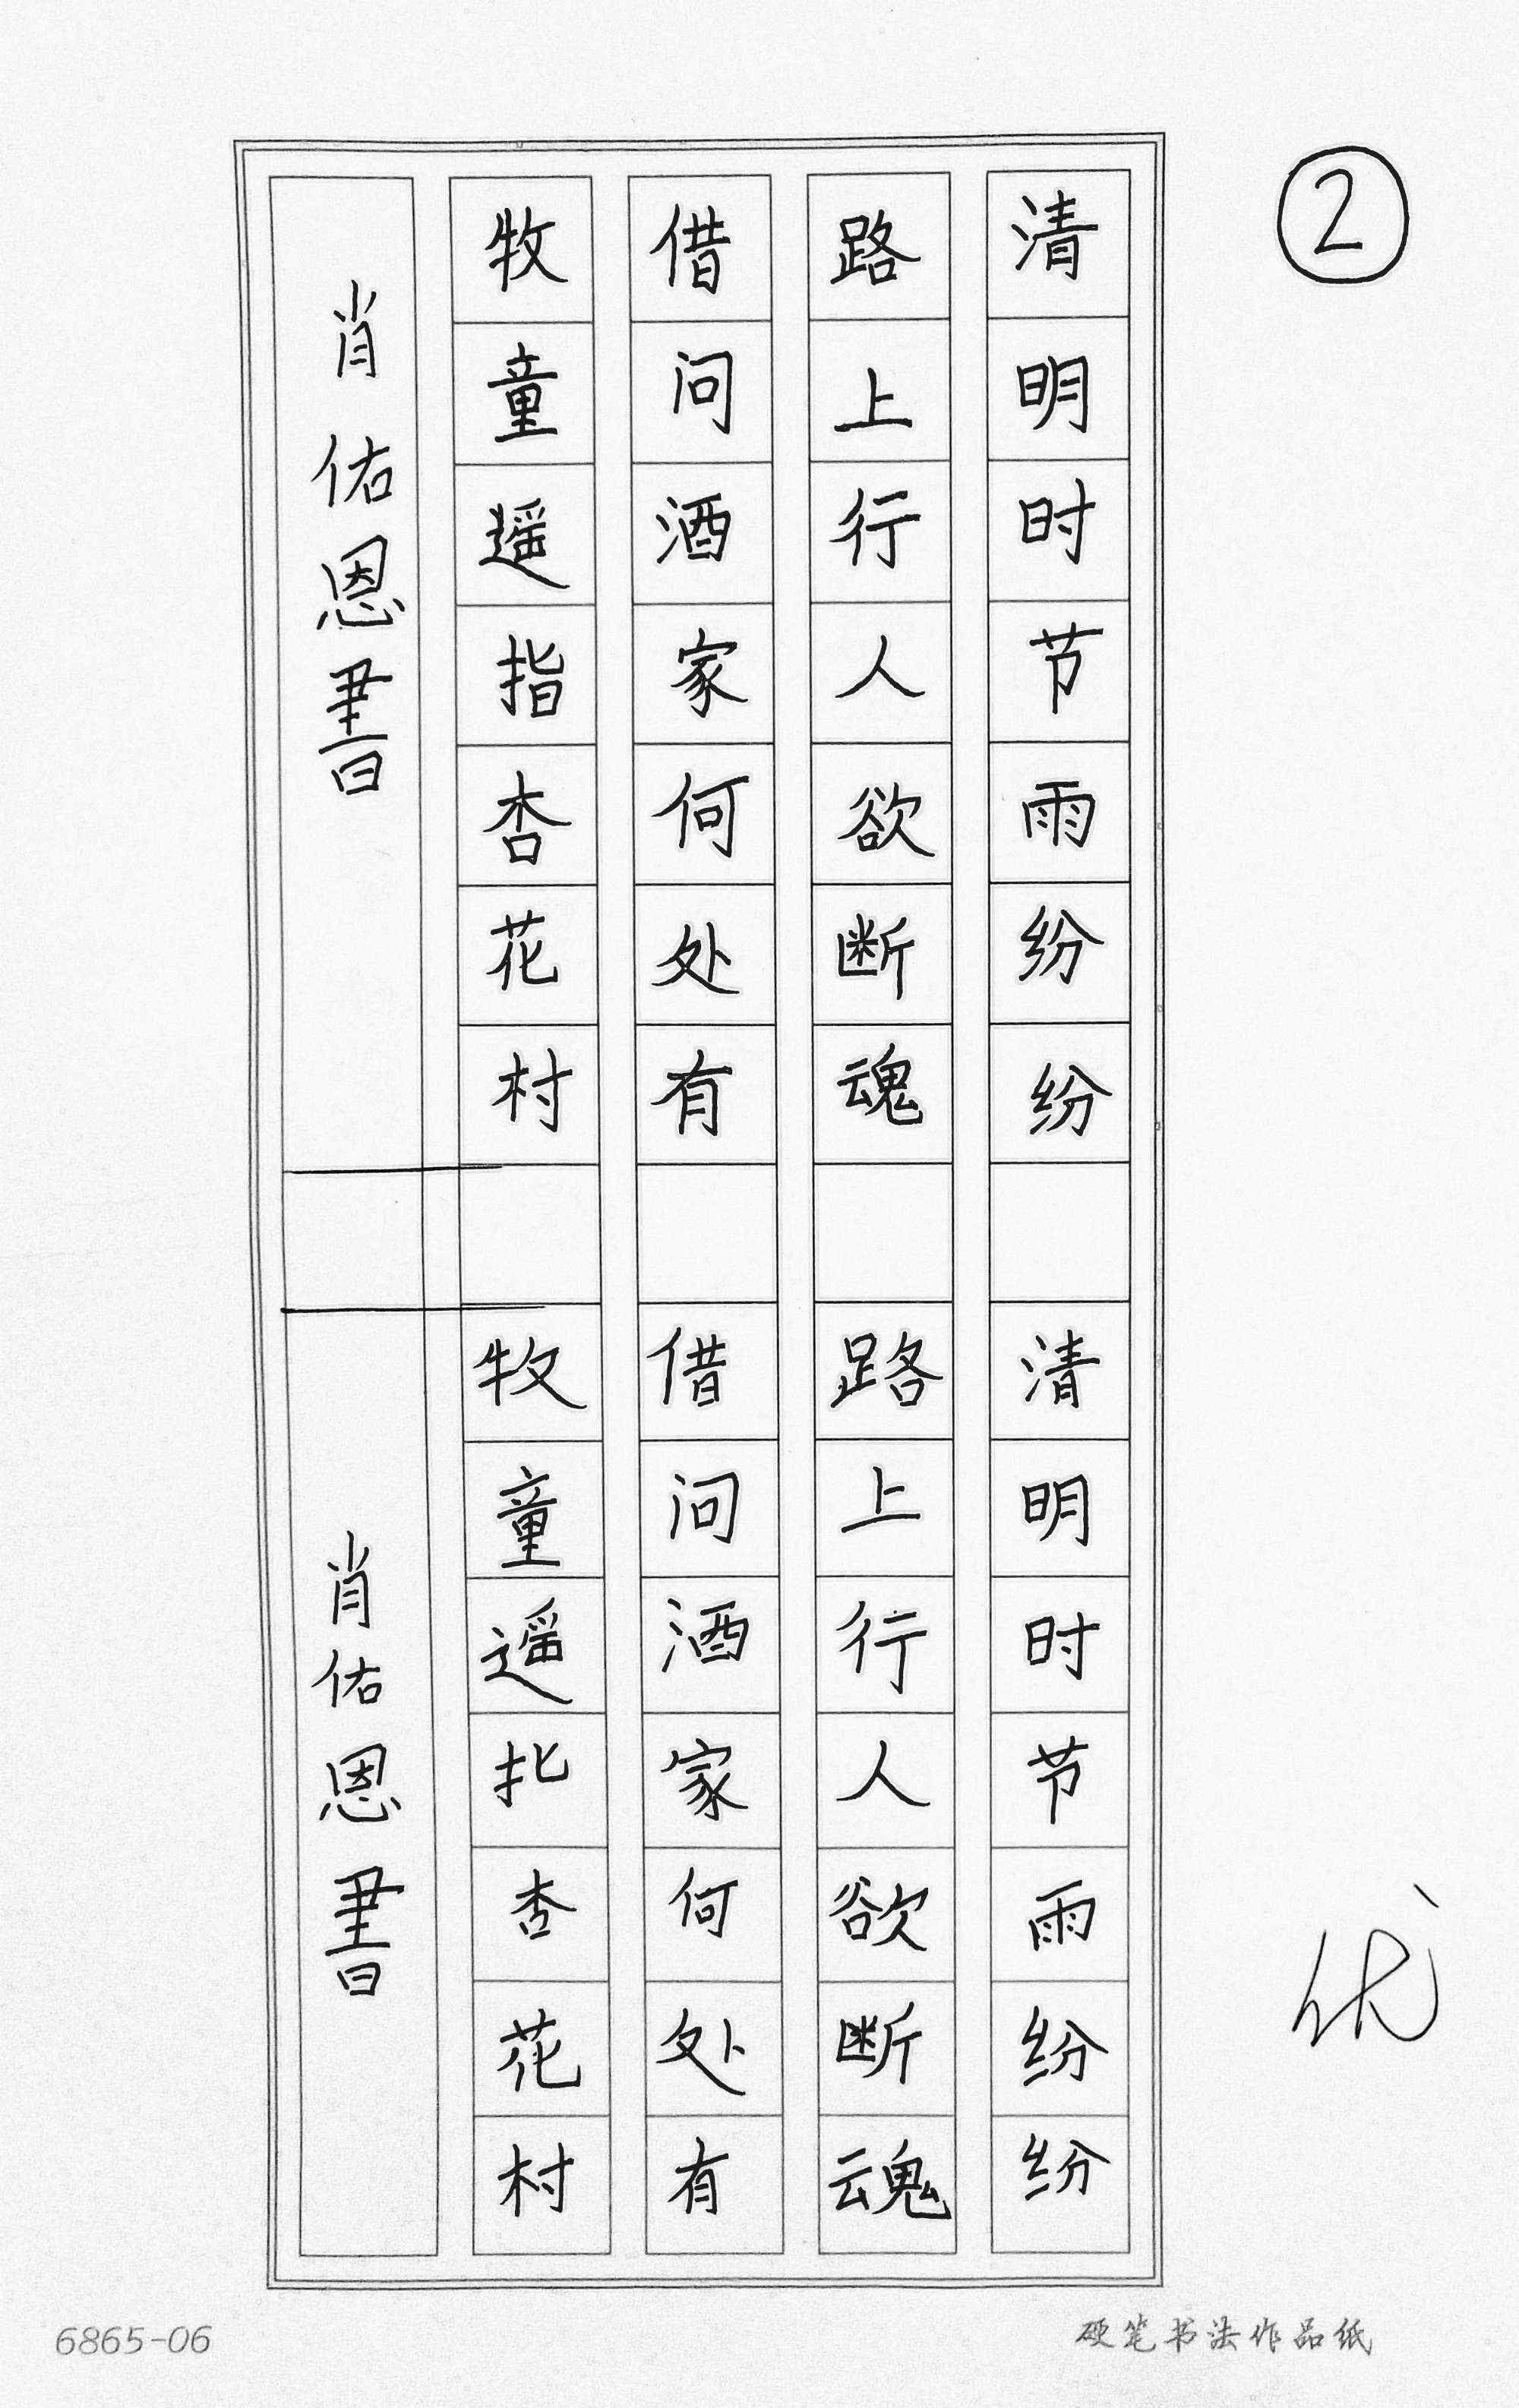 ②
清明时节雨纷纷
路上行人欲断魂
借问酒家何处有
牧童遥指杏花村
肖佑恩書
清明时节雨纷纷
路上行人欲断魂
借问酒家何处有
牧童遥杏花村
肖佑恩書
优
6865-06
硬笔书法作品纸